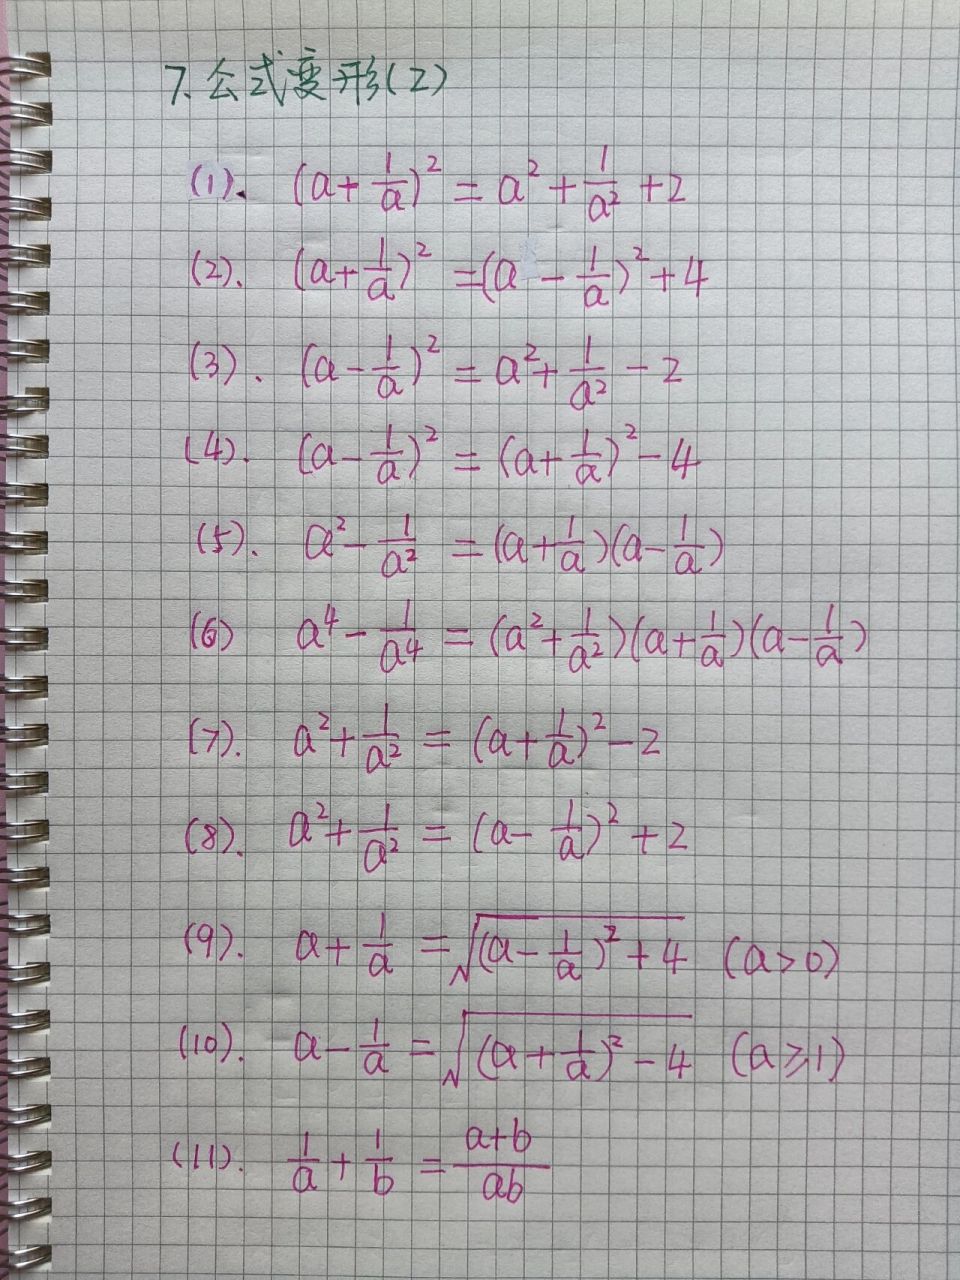 7. 公式变形(2)
(1). (a+1/a)² = a²+1/a²+2
(2). (a+1/a)² =(a-1/a)²+4
(3). (a-1/a)² = a²+1/a²-2
(4). (a-1/a)² = (a+1/a)²-4
(5). a²-1/a² = (a+1/a)(a-1/a)
(6) a⁴-1/a⁴ = (a²+1/a²)(a+1/a)(a-1/a)
(7). a²+1/a² = (a+1/a)²-2
(8). a²+1/a² = (a-1/a)²+2
(9). a+1/a = √((a-1/a)²+4) (a>0)
(10). a-1/a = √((a+1/a)²-4) (a⩾1)
(11). 1/a+1/b = (a+b)/ab